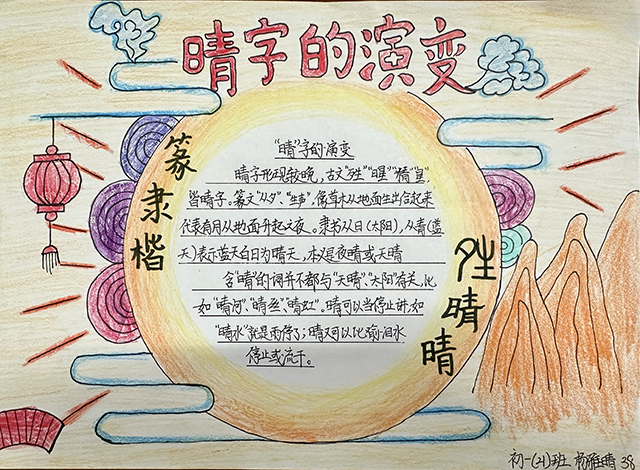 晴字的演变
篆
隶
楷
"晴"字的演变
晴字形现较晚，古文"夝""暒""
皆晴字。篆文"从夕"、"生声"，像草木从地面生出合起来
代表有月从地面升起之夜。隶书从日(太阳)，从青(蓝
天)表示蓝天白日为晴天，本义是夜晴或天晴
含"晴"的词并不都与"天晴"、"太阳"有关，比
如"晴河"、"晴丝"、"晴虹"。晴可以当停止讲，如
"晴水"就是雨停了；晴又可以比喻泪水
停止或流干。
夝
晴
晴
初一(21)班 杨雅晴 38